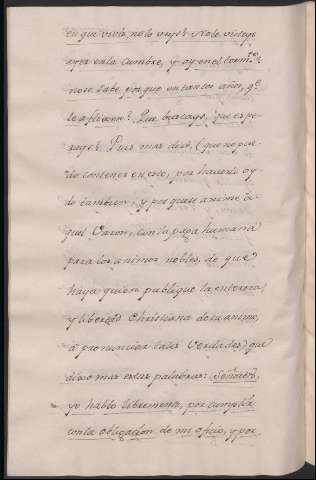 en que vivia, no lo vuyó? No le visteys
ayer en la cumbre, y oy en el torm.to,
no se sabe por que en tantos años, q.e
le afligen? Que buscays, que espe-
rays? Pues mas diré, (que no pue-
do contener en esto, por haverlo oy-
do tambien, y por que se anime a-
quel Varon, con la paga humana
para los animos nobles, de que
haya quien publique la entereza,
y libertad Christiana de su animo,
a pronunciar tales Verdades) que
dixo mas estas palabras: Señores,
yo hablo libremente, por cumplir
con la obligacion de mi oficio, y por